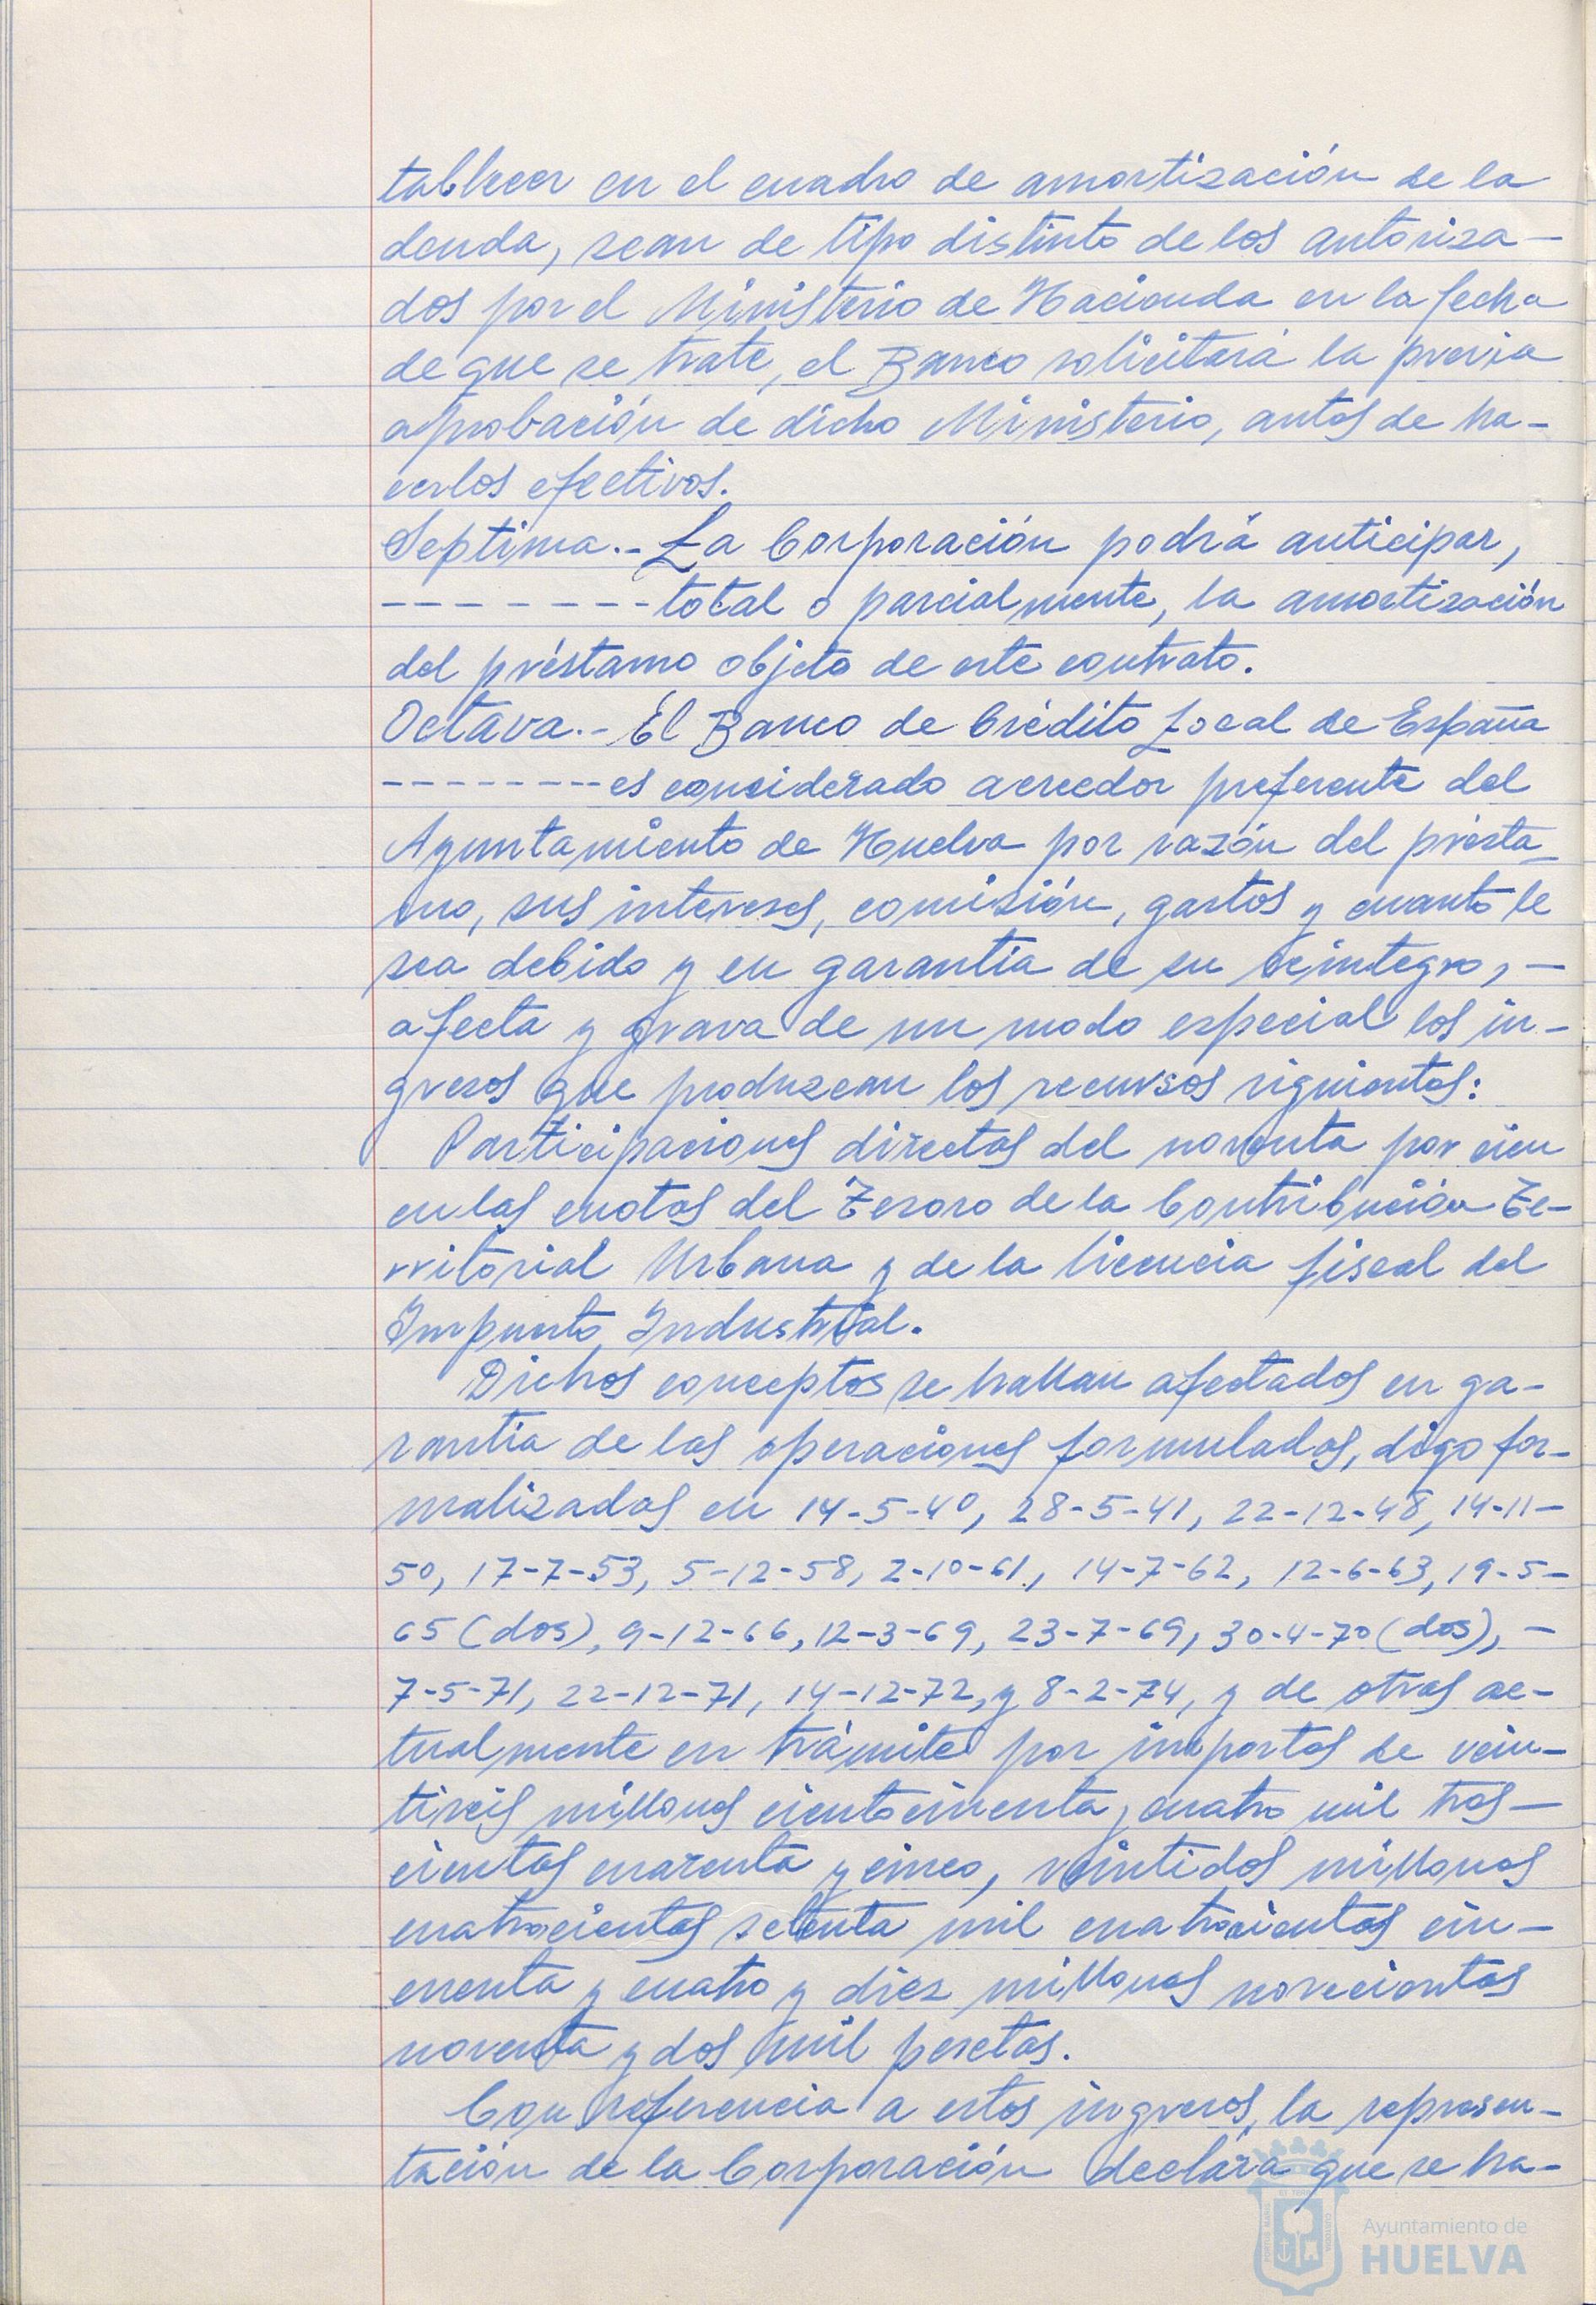 tablecer en el cuadro de amortización de la
deuda, sean de tipo distinto de los autoriza-
dos por el Ministerio de Hacienda en la fecha
de que se trate, el Banco solicitará la previa
aprobación de dicho Ministerio, antes de ha-
cerlos efectivos.
Septima.- La Corporación podrá anticipar,
- - - - - - - total o parcialmente, la amortización
del préstamo objeto de este contrato.
Octava.- El Banco de Crédito Local de España
- - - - - - - - es considerado acreedor preferente del
Ayuntamiento de Huelva por razón del présta-
mo, sus intereses, comisión, gastos y cuanto le
sea debido y en garantía de su reintegro, -
afecta y grava de un modo especial los in-
gresos que produzcan los recursos siguientes:
Participaciones directas del noventa por cien
en las cuotas del Tesoro de la Contribución Te-
rritorial Urbana y de la licencia fiscal del
Impuesto Industrial.
Dichos conceptos se hallan afectados en ga-
rantia de las operaciones formuladas, digo for-
malizadas en 14-5-40, 28-5-41, 22-12-48, 14-11-
50, 17-7-53, 5-12-58, 2-10-61, 14-7-62, 12-6-63, 19-5-
65 (dos), 9-12-66, 12-3-69, 23-7-69, 30-4-70 (dos), -
7-5-71, 22-12-71, 14-12-72, y 8-2-74, y de otras ac-
tualmente en trámite por importes de vein-
tiseis millones cientocincuenta y cuatro mil tres-
cientas cuarenta y cinco, veintidos millones
cuatrocientas setenta mil cuatrocientas cin-
cuenta y cuatro y diez millones novecientas
noventa y dos mil pesetas.
Con referencia a estos ingresos, la represen-
tación de la Corporación declara que se ha-
Ayuntamiento de
HUELVA